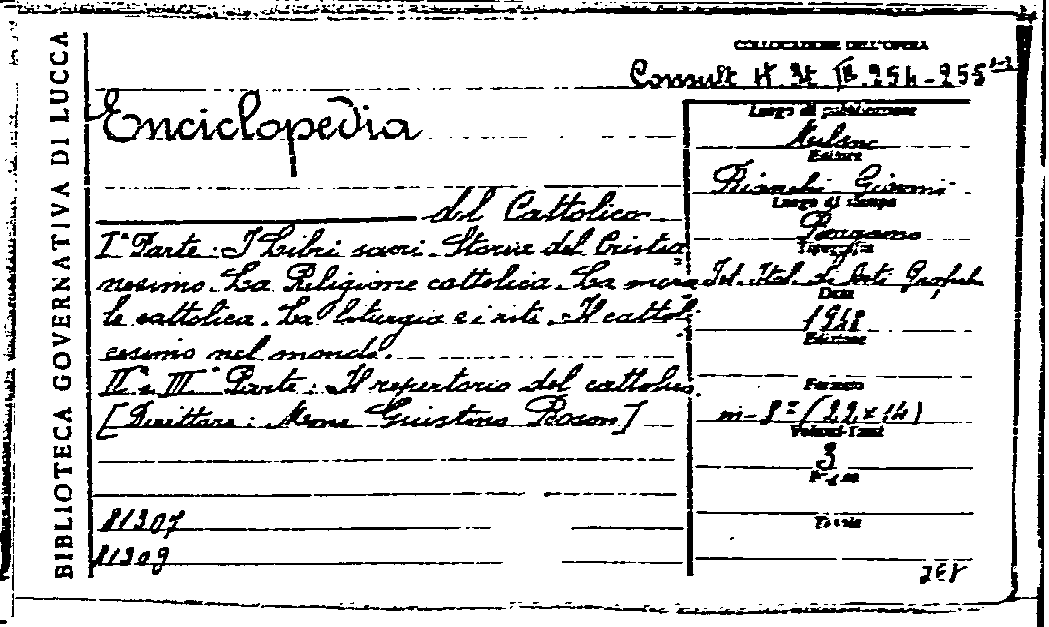 BIBLIOTECA GOVERNATIVA DI LUCCA
COLLOCAZIONE DELL'OPERA
Consult 254-255
Enciclopedia
del Cattolico
Iª Parte: I Libri sacri. Storia del Cristia
nesimo. La Religione cattolica. La mora
le cattolica. La liturgia e i riti. Il cattoli
cesimo nel mondo.
IIª e IIIª Parte: Il repertorio del cattolico.
[Direttore: Mons. Giustino Boson]
81307
81309
Luogo di pubblicazione
Milano
Editore
Bianchi Giovini
Luogo di stampa
Bergamo
Tipografia
Ist. Ital. di Arti Grafiche
Data
1948
Edizione
Formato
in-8º (22x14)
Volumi-Tomi
3
Pagine
Tavole